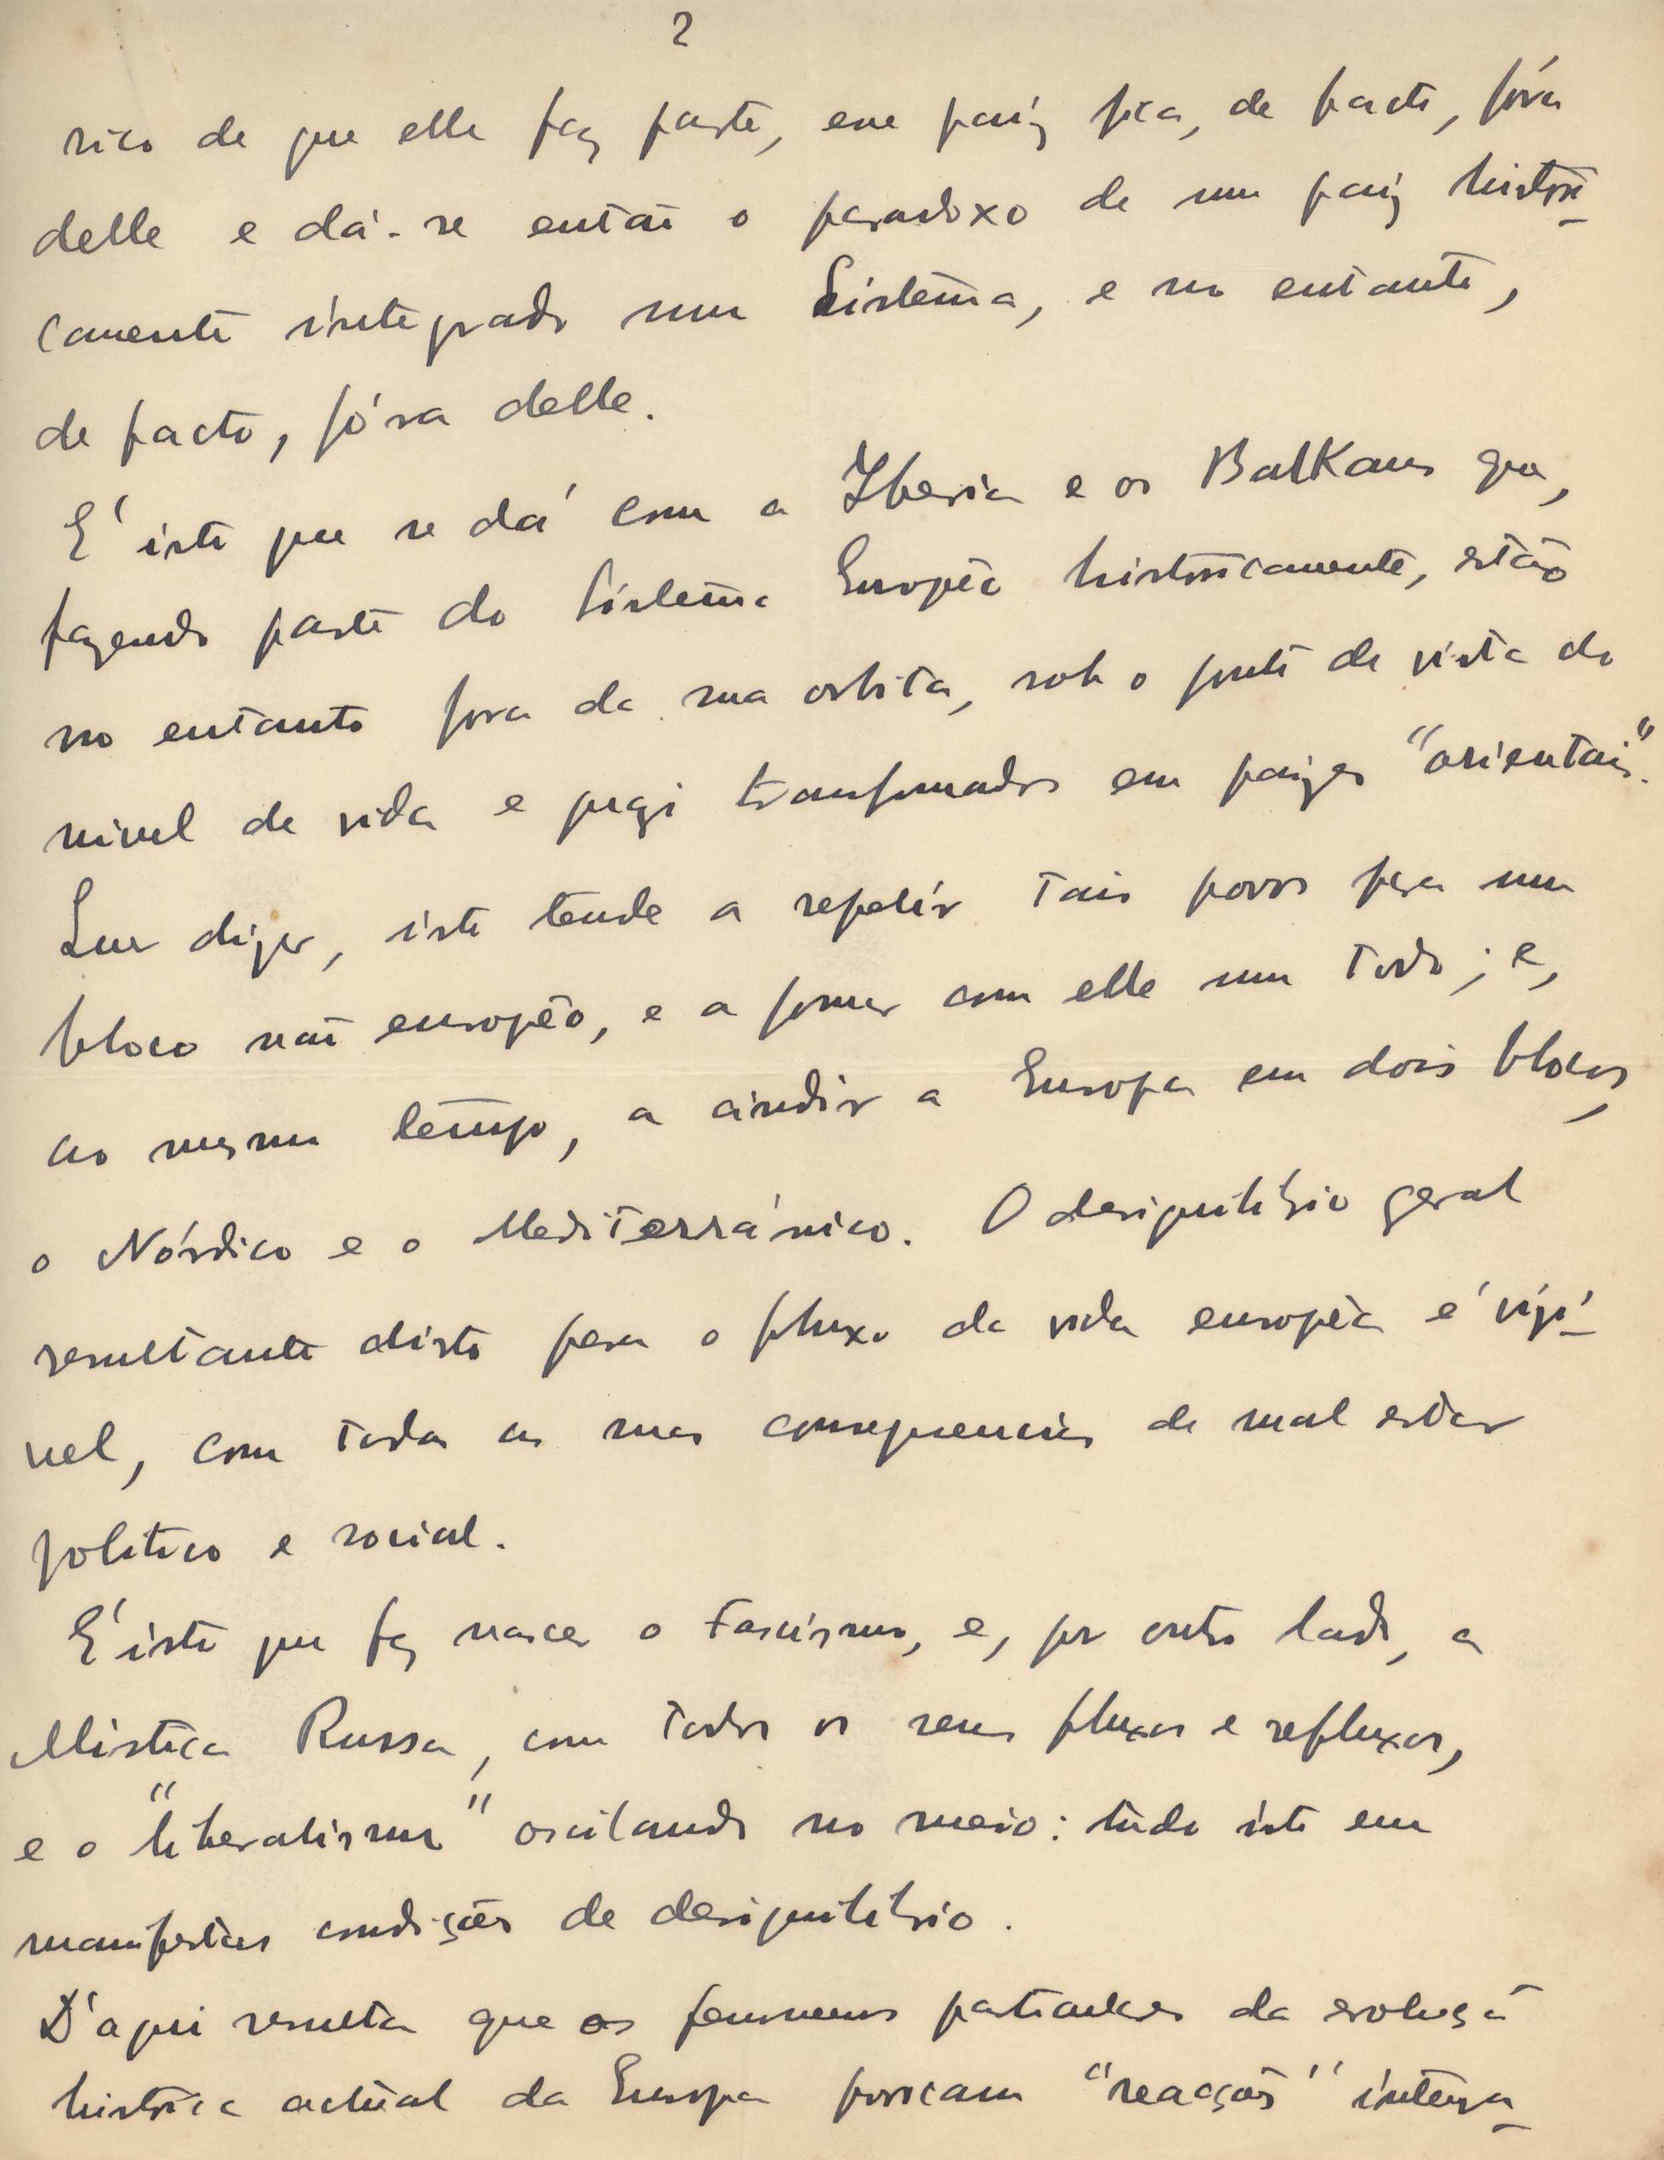 2
rico de que elle faz parte, esse paiz fica, de facto, fóra
delle e dá-se então o paradoxo de um paiz histori-
camente integrado num Sistema, e no entanto,
de facto, fóra delle.
E' isto que se dá com a Iberia e os Balkans que,
fazendo parte do Sistema Europêo historicamente, estão
no entanto fora da sua orbita, sob o ponto de vista do
nivel de vida e quasi transformados em paizes "orientais".
Quer dizer, isto tende a repelir tais povos para um
bloco não europêo, e a formar com elle um todo; e,
ao mesmo tempo, a cindir a Europa em dois blocos,
o Nórdico e o Mediterránico. O desiquilibrio geral
resultante disto para o fluxo da vida europêa é visí-
vel, com todas as suas consequencias de mal estar
politico e social.
E' isto que faz nascer o Fascismo, e, por outro lado, a
Mistica Russa, com todos os seus fluxos e refluxos,
e o "liberalismo" oscilando no meio: tudo isto em
manifestas condições de desiquilibrio.
D'aqui resulta que os fenomenos particulares da evolução
historica actual da Europa provocam "reacções" interna-